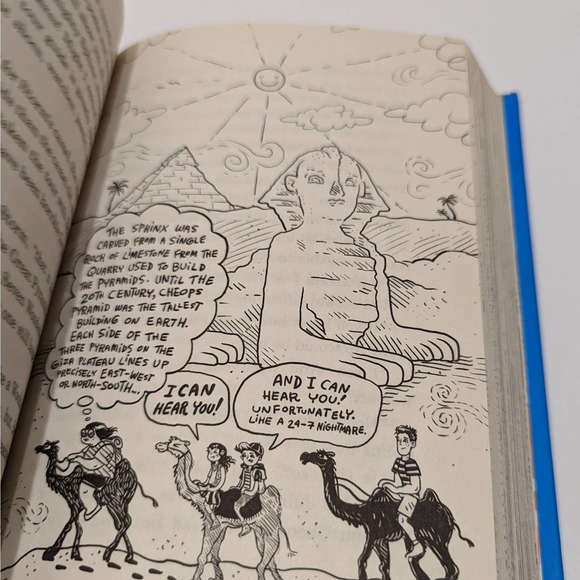 THE SPHINX WAS
CARVED FROM A SINGLE
BOCH OF LIMESTONE FROM THE
QUARRY USED TO BUILD
THE PYRAMIDS. UNTIL THE
20TH CENTURY, CHEOPS
PYRAMID WAS THE TALLEST
BUILDING ON EARTH.
EACH SIDE OF THE
THREE PYRAMIDS ON THE
GIZA PLATEAU LINES UP
PRECISELY EAST-WEST
OR NORTH-SOUTH...
I CAN
HEAR YOU!
AND I CAN
HEAR YOU!
UNFORTUNATELY.
LIKE A 24-7 NIGHTMARE.